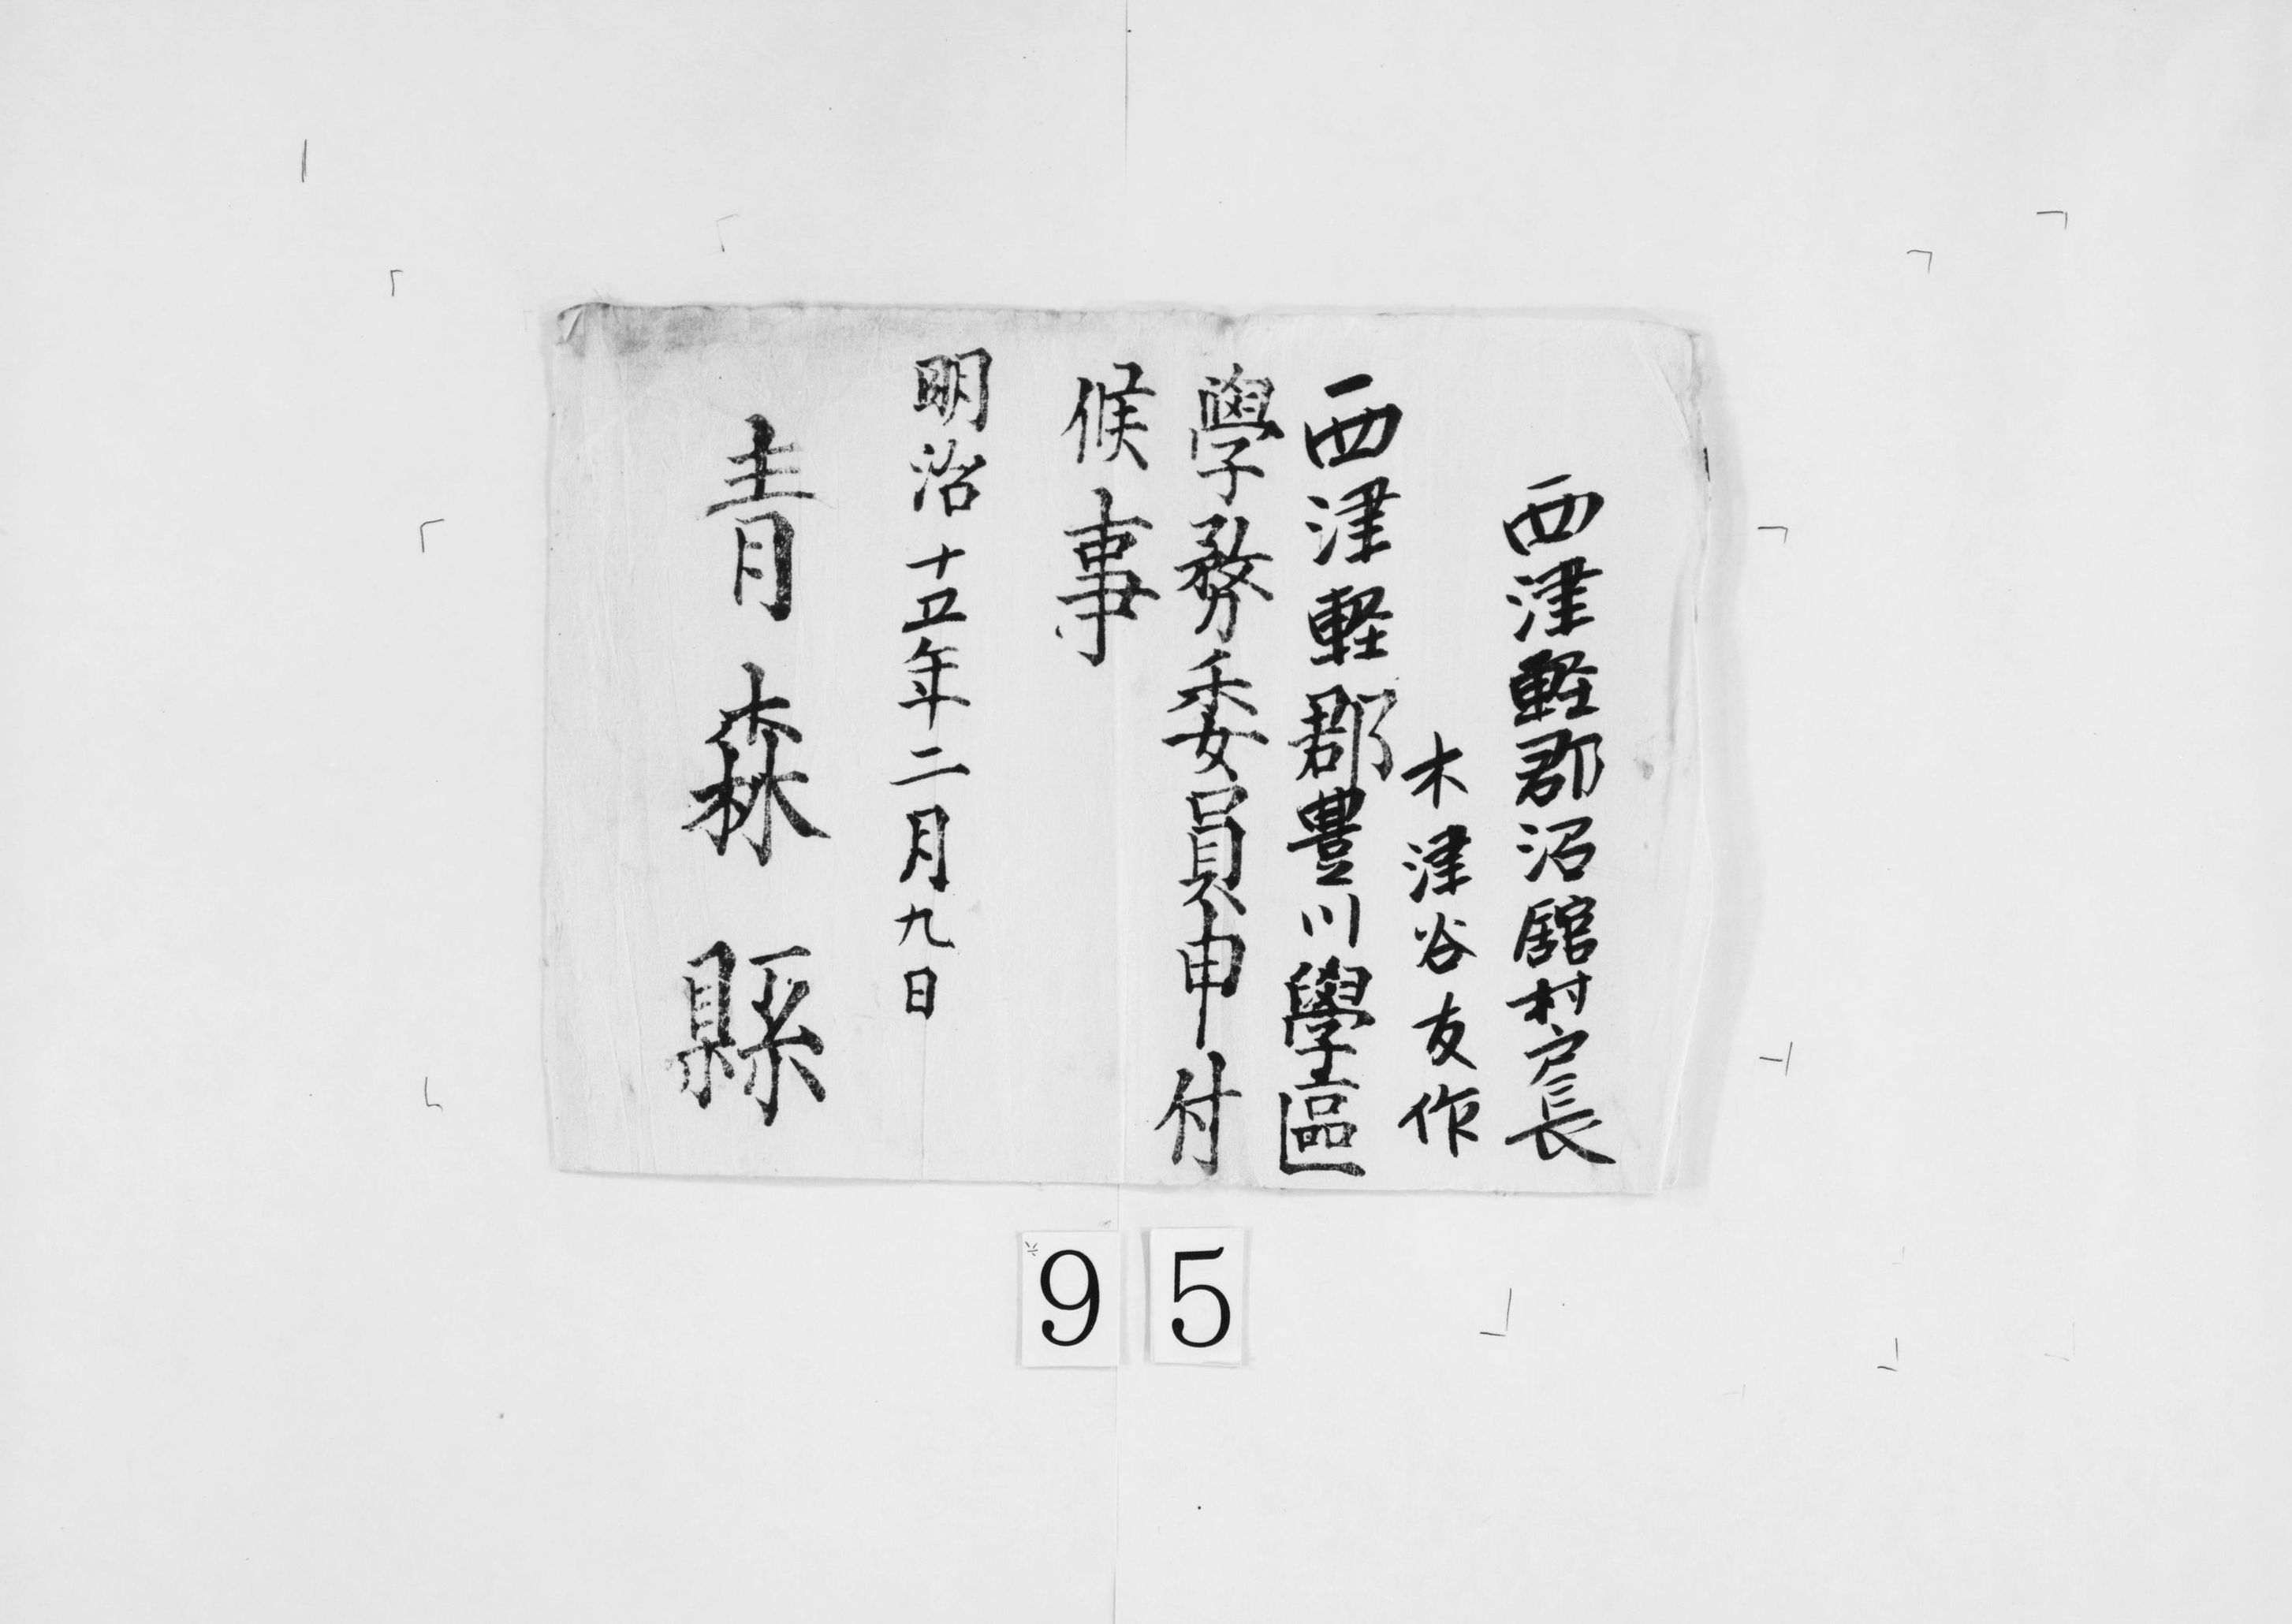 西津軽郡沼舘村戸長
木津谷友作
西津軽郡豊川學區
學務委員申付
候事
明治十五年二月九日
青森縣
95